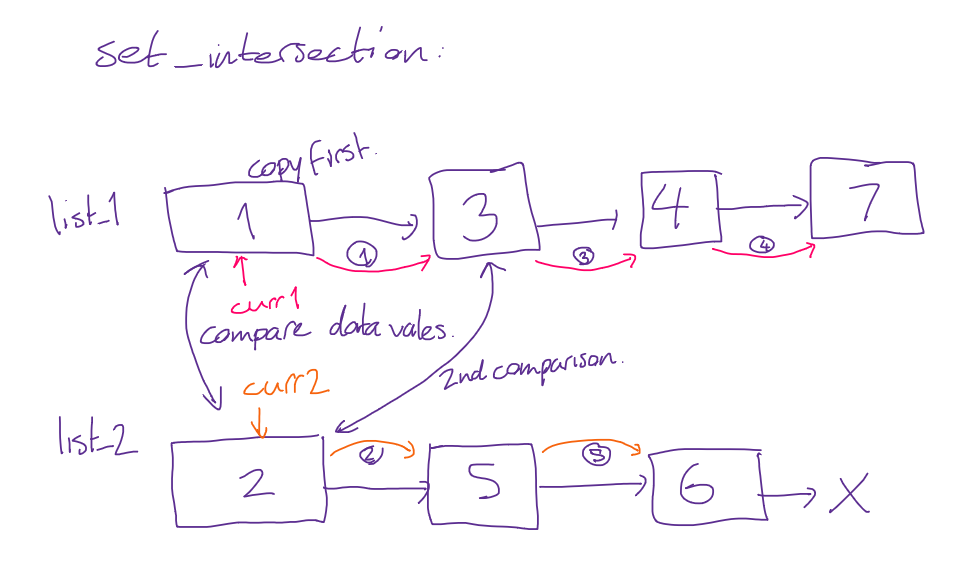 set_intersection:
copy first.
list_1
1
3
4
7
①
③
④
curr1
compare data vales.
2nd comparison.
curr2
list_2
②
⑤
2
5
6
X